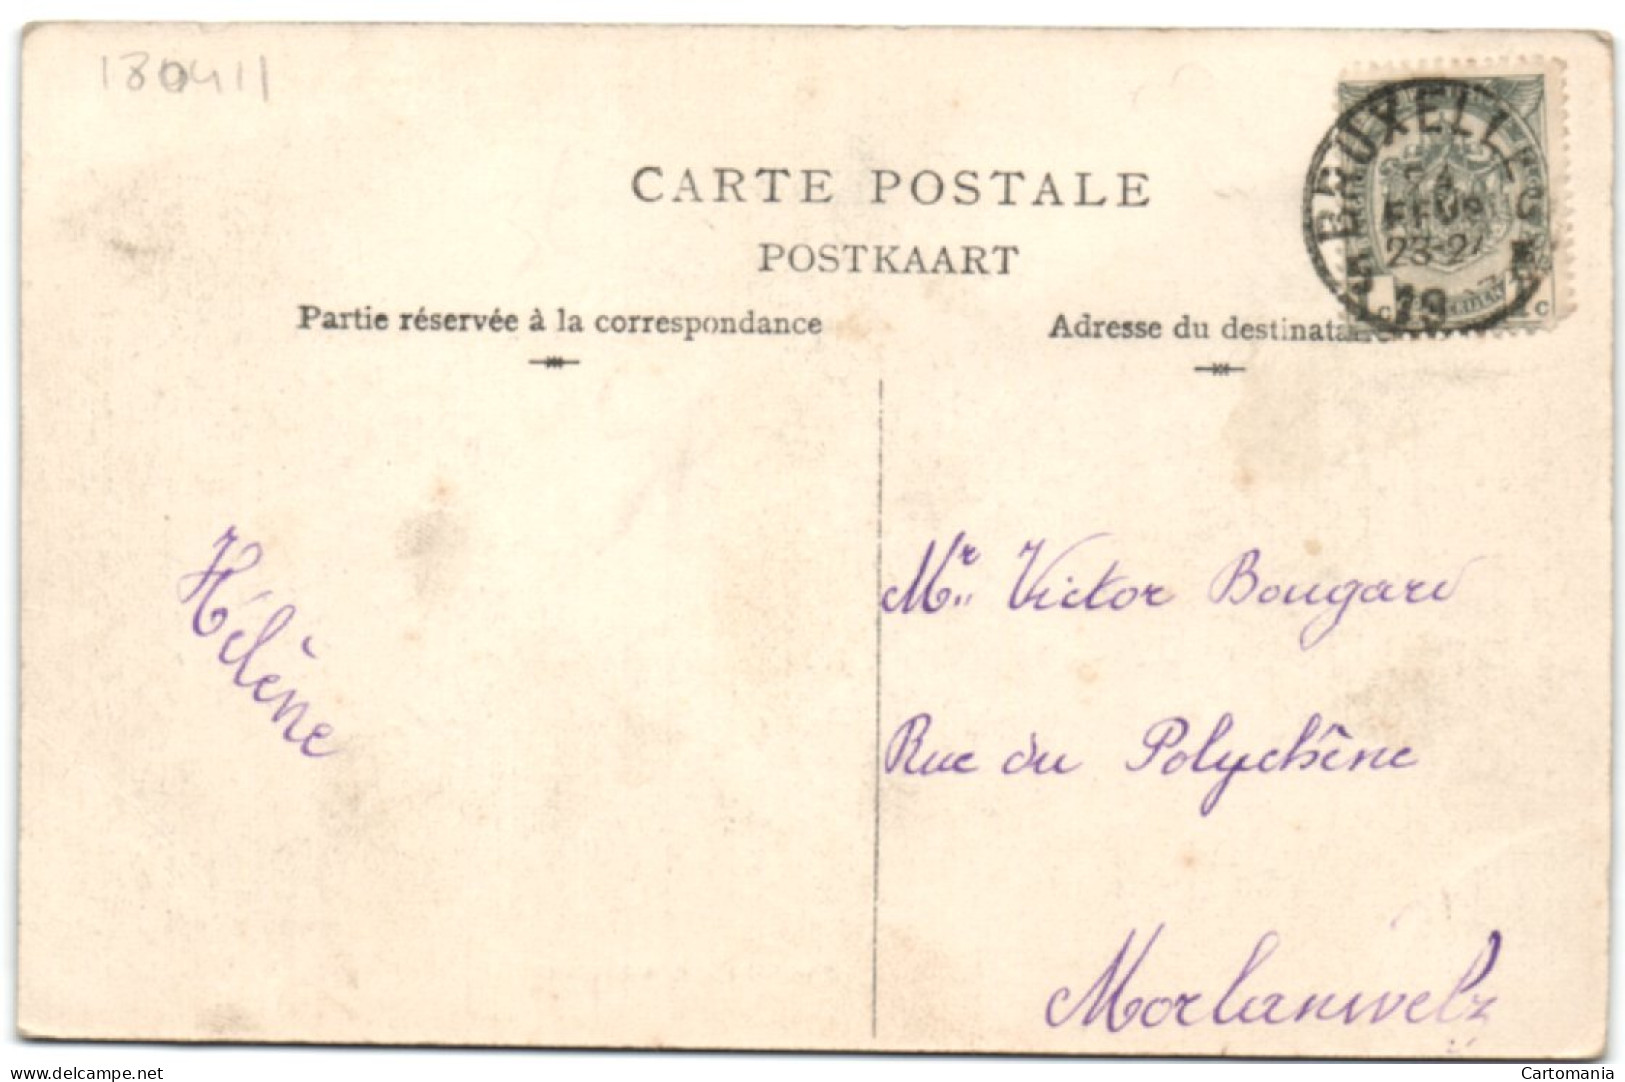 130411
CARTE POSTALE
POSTKAART
Partie réservée à la correspondance
Adresse du destinataire
BRUXELLES
23-24
19
Hélène
Mr. Victor Bougard
Rue du Polychêne
Morlanwelz
www.delcampe.net
Cartomania